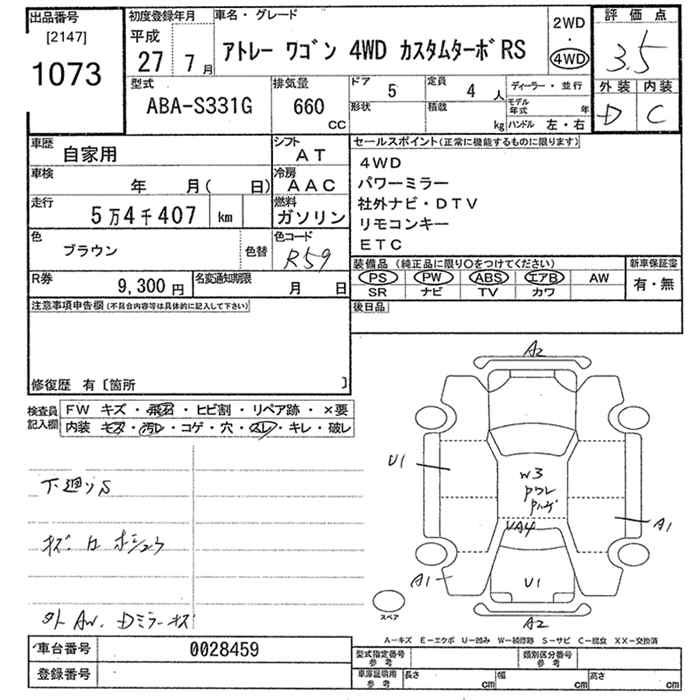 出品番号 初度登録年月 車名・グレード 2WD 評価点
[2147] 平成
1073 27 7月 アトレー ワゴン 4WD カスタムターボRS ・4WD 3.5
型式 排気量 ドア 定員 ディーラー・並行 外装 内装
ABA-S331G 660 CC 5 4人 D C
形状 積載 kg モデル年式 年
ハンドル 左・右
車歴 自家用 シフト AT セールスポイント(正常に機能するものに限ります)
車検 年 月( 日) 冷房 AAC 4WD
パワーミラー
走行 5万4千407 km 燃料 ガソリン 社外ナビ・DTV
リモコンキー
色 ブラウン 色替 色コード R59 ETC
装備品(純正品に限り○をつけてください) 新車保証書
R券 9,300円 名変通知期限 月 日 PS PW ABS エアB AW 有・無
SR ナビ TV カワ
注意事項申告欄(不具合内容等は具体的に記入して下さい) 後日品
修復歴 有〔箇所 〕
検査員記入欄 FW キズ・飛石・ヒビ割・リペア跡・×要
内装 キズ・汚レ・コゲ・穴・スレ・キレ・破レ
下廻りS
キズ・
外AW. Dミラーキズ
A2
U1
W3
UA4
A1
A1
U1
A2
スペア
A-キズ E-エクボ U-凹み W-補修跡 S-サビ C-腐食 XX-交換済
車台番号 0028459 型式指定番号 参考 類別区分番号 参考
登録番号 車庫証明用 参考 長さ cm 幅 cm 高さ cm